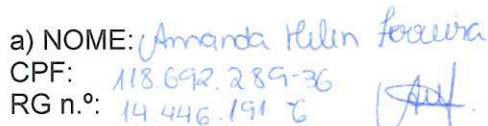 a) NOME: Amanda Helen Ferreira
CPF: 118.692.289-36
RG n.º: 14.446.191 6